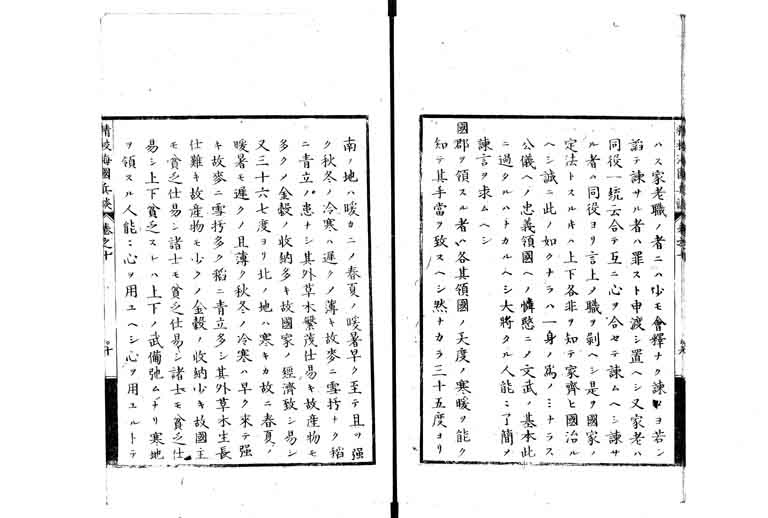 ハス家老職ノ者ニハ少モ會釋ナク諫ヨ若シ
諂テ諫サル者ハ罪スト申渡シ置ヘシ又家老ハ
同役一統云合テ互ニ心ヲ合セテ諫ムヘシ諫サ
ル者ハ同役ヨリ言上ノ職ヲ剥ヘシ是ヲ國家ノ
定法トスルキハ上下各非ヲ知テ家齊ヒ國治ル
ヘシ誠ニ此ノ如クナラハ一身ノ爲ノミニナラス
公儀ヘノ忠義領國ヘノ憐愍ニノ文武ノ基本此
ニ過タルハトカルヘシ大將タル人能〻了簡ノ
諫言ヲ求ムヘシ
國郡ヲ領スル者ハ各其領國ノ天度ノ寒暖ヲ能ク
知テ其手當ヲ致スヘシ然ナカラ三十五度ヨリ
南ノ地ハ暖カニノ春夏ノ暖暑早ク至テ且ツ强
ク秋冬ノ冷寒ハ遲クノ薄キ故麥ニ雪折ナク稻
ニ青立ノ患ナシ其外草木繁茂仕易キ故産物モ
多クノ金穀ノ收納多キ故國家ノ經濟致シ易シ
又三十六七度ヨリ北ノ地ハ寒キカ故ニ春夏ノ
暖暑モ遲クノ且薄ク秋冬ノ冷寒ハ早ク來テ强
キ故麥ニ雪折多ク稻ニ青立多シ其外草木生長
仕難キ故産物モ少クノ金穀ノ收納少キ故國主
モ貧乏仕易シ諸士モ貧乏仕易シ諸士モ貧乏仕
易シ上下貧乏スレハ上下ノ武備弛ムナリ寒地
ヲ領スル人能〻心ヲ用ユヘシ心ヲ用ユルトテ
精校海國兵談 卷之十